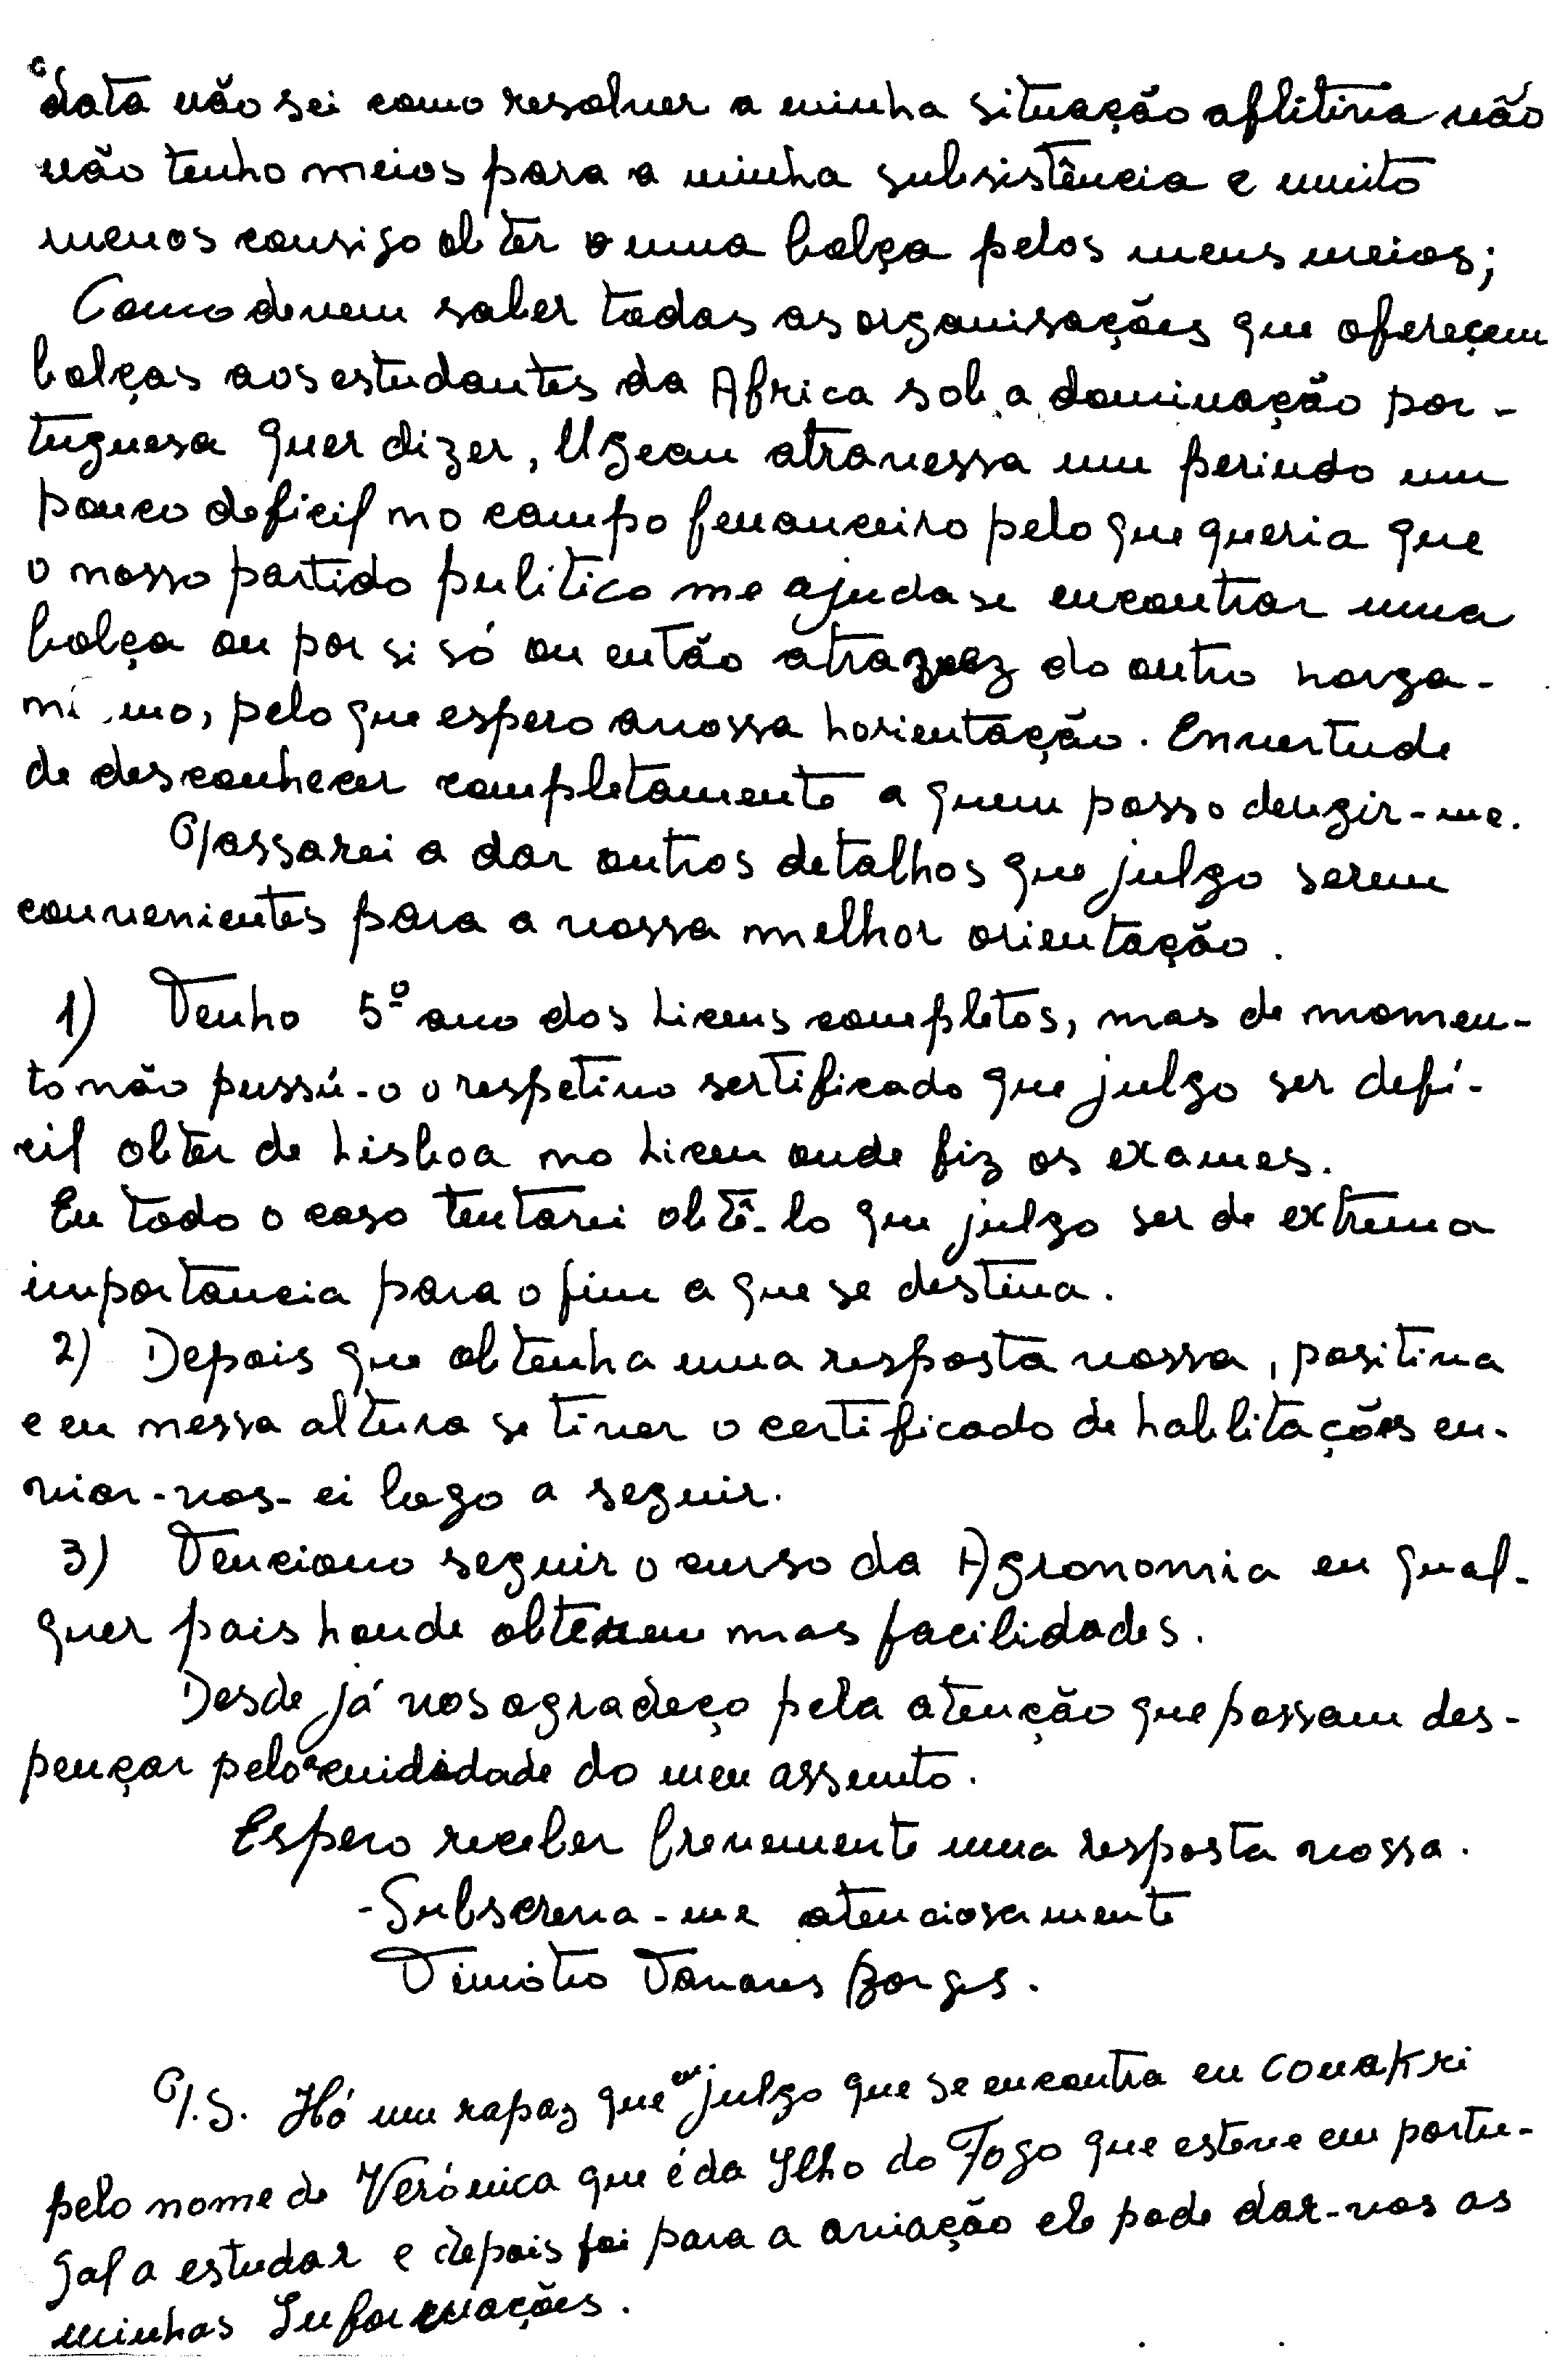 data não sei como resolver a minha situação aflitiva não
não tenho meios para a minha subsistência e muito
menos consigo obter uma bolça pelos meus meios;
Como devem saber todas as organisações que ofereçem
bolças aos estudantes da Africa sob a dominação por-
tuguesa quer dizer, Ugean atravessa um periudo um
pouco deficil no campo fenanceiro pelo que queria que
o nosso partido pulitico me ajudase encontrar uma
bolça ou por si só ou então atravez do outro horga-
nimo, pelo que espero a vossa horientação. Envertude
de desconhecer completamente a quem posso deregir-me.
Passarei a dar outros detalhos que julgo serem
convenientes para a vossa melhor orientação.
1) Tenho 5º ano dos Liceus completos, mas de momen-
to não pussú-o o respetivo sertificado que julgo ser defi-
cil obter de Lisboa no Liceu onde fiz os exames.
Eu todo o caso tentarei obtê-lo que julgo ser de extrema
importancia para o fim a que se destina.
2) Depois que obtenha uma resposta vossa, positiva
e eu nessa altura se tiver o certificado de habilitações en-
viar-vos-ei logo a seguir.
3) Tenciono seguir o curso da Agronomia en qual-
quer pais honde obterem mas facilidades.
Desde já vos agradeço pela atenção que possam des-
pençar pelo cuidadade do meu assunto.
Espero receber brevemente uma resposta vossa.
-Subscreva-me atenciosamente
Timótio Tavares Borges.
P.S. Há um rapaz que eu julgo que se encontra en Conakri
pelo nome de Verónica que é da Ilho do Fogo que esteve em portu-
gal a estudar e depois foi para a aviação ele pode dar-vos as
minhas Informações.